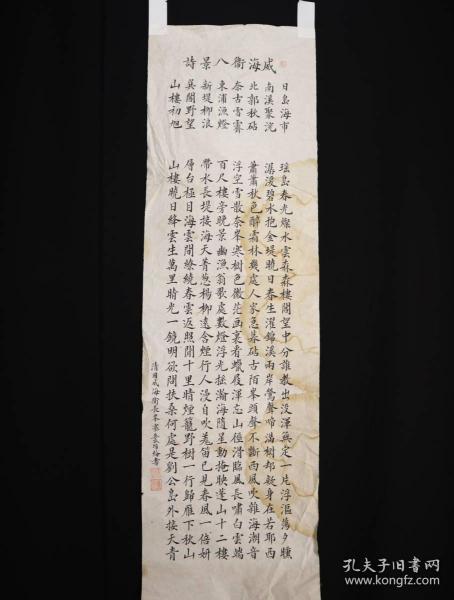 威海衛八景詩
日島海市
南溪聚浣
北郭秋砧
奈古雪霽
東浦漁燈
新堤柳浪
巽閣野望
山樓初旭
瑤島春光燦水雲森森樓閣望中分誰教出没渾無定一片浮漚蕩夕曛
潺湲碧水抱金堤曉日春生濯錦溪兩岸鶯聲啼滿樹却疑身在若耶西
蕭蕭秋色醉霜林幾處人家急暮砧古陌峯頭聲不斷西風吹雜海潮音
浮空雪散奈峯寒樹色微茫画裏看蠟屐渾忘山徑滑臨風長嘯白雲端
百尺樓旁晚景幽漁翁歌處數燈浮光搖瀚海隨星動掩映蓬山十二樓
帶水長堤接海天菁葱楊柳遠含煙行人漫自吹羌笛已見春風一倍妍
層台極目海雲間繚繞春雲返照閒十里晴煙籠野樹一行歸雁下秋山
山樓曉日絳雲生萬里晴光一鏡明欲問扶桑何處是劉公島外接天青
威海衛長峯寨
孔夫子旧书网
www.kongfz.com